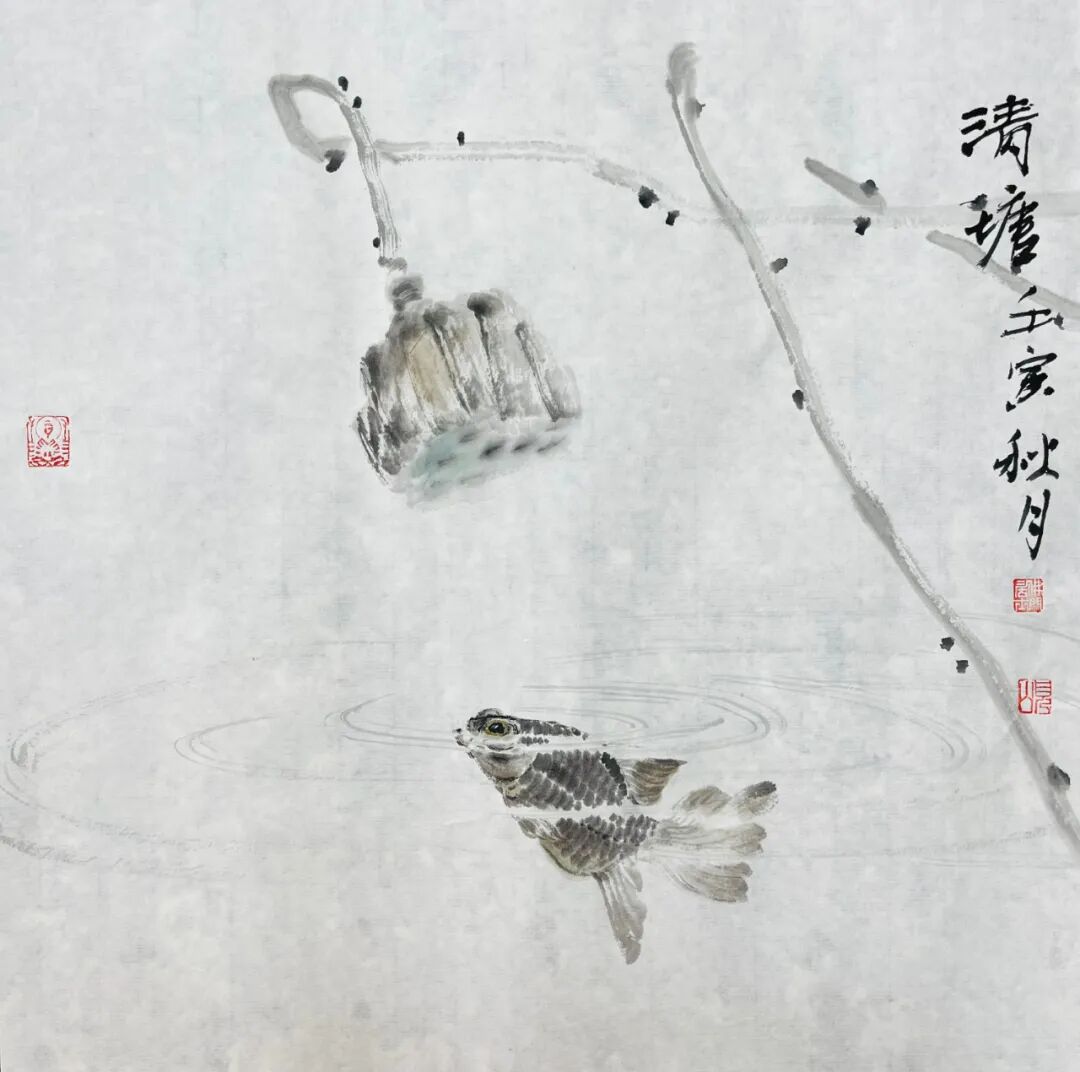 清塘壬寅秋月